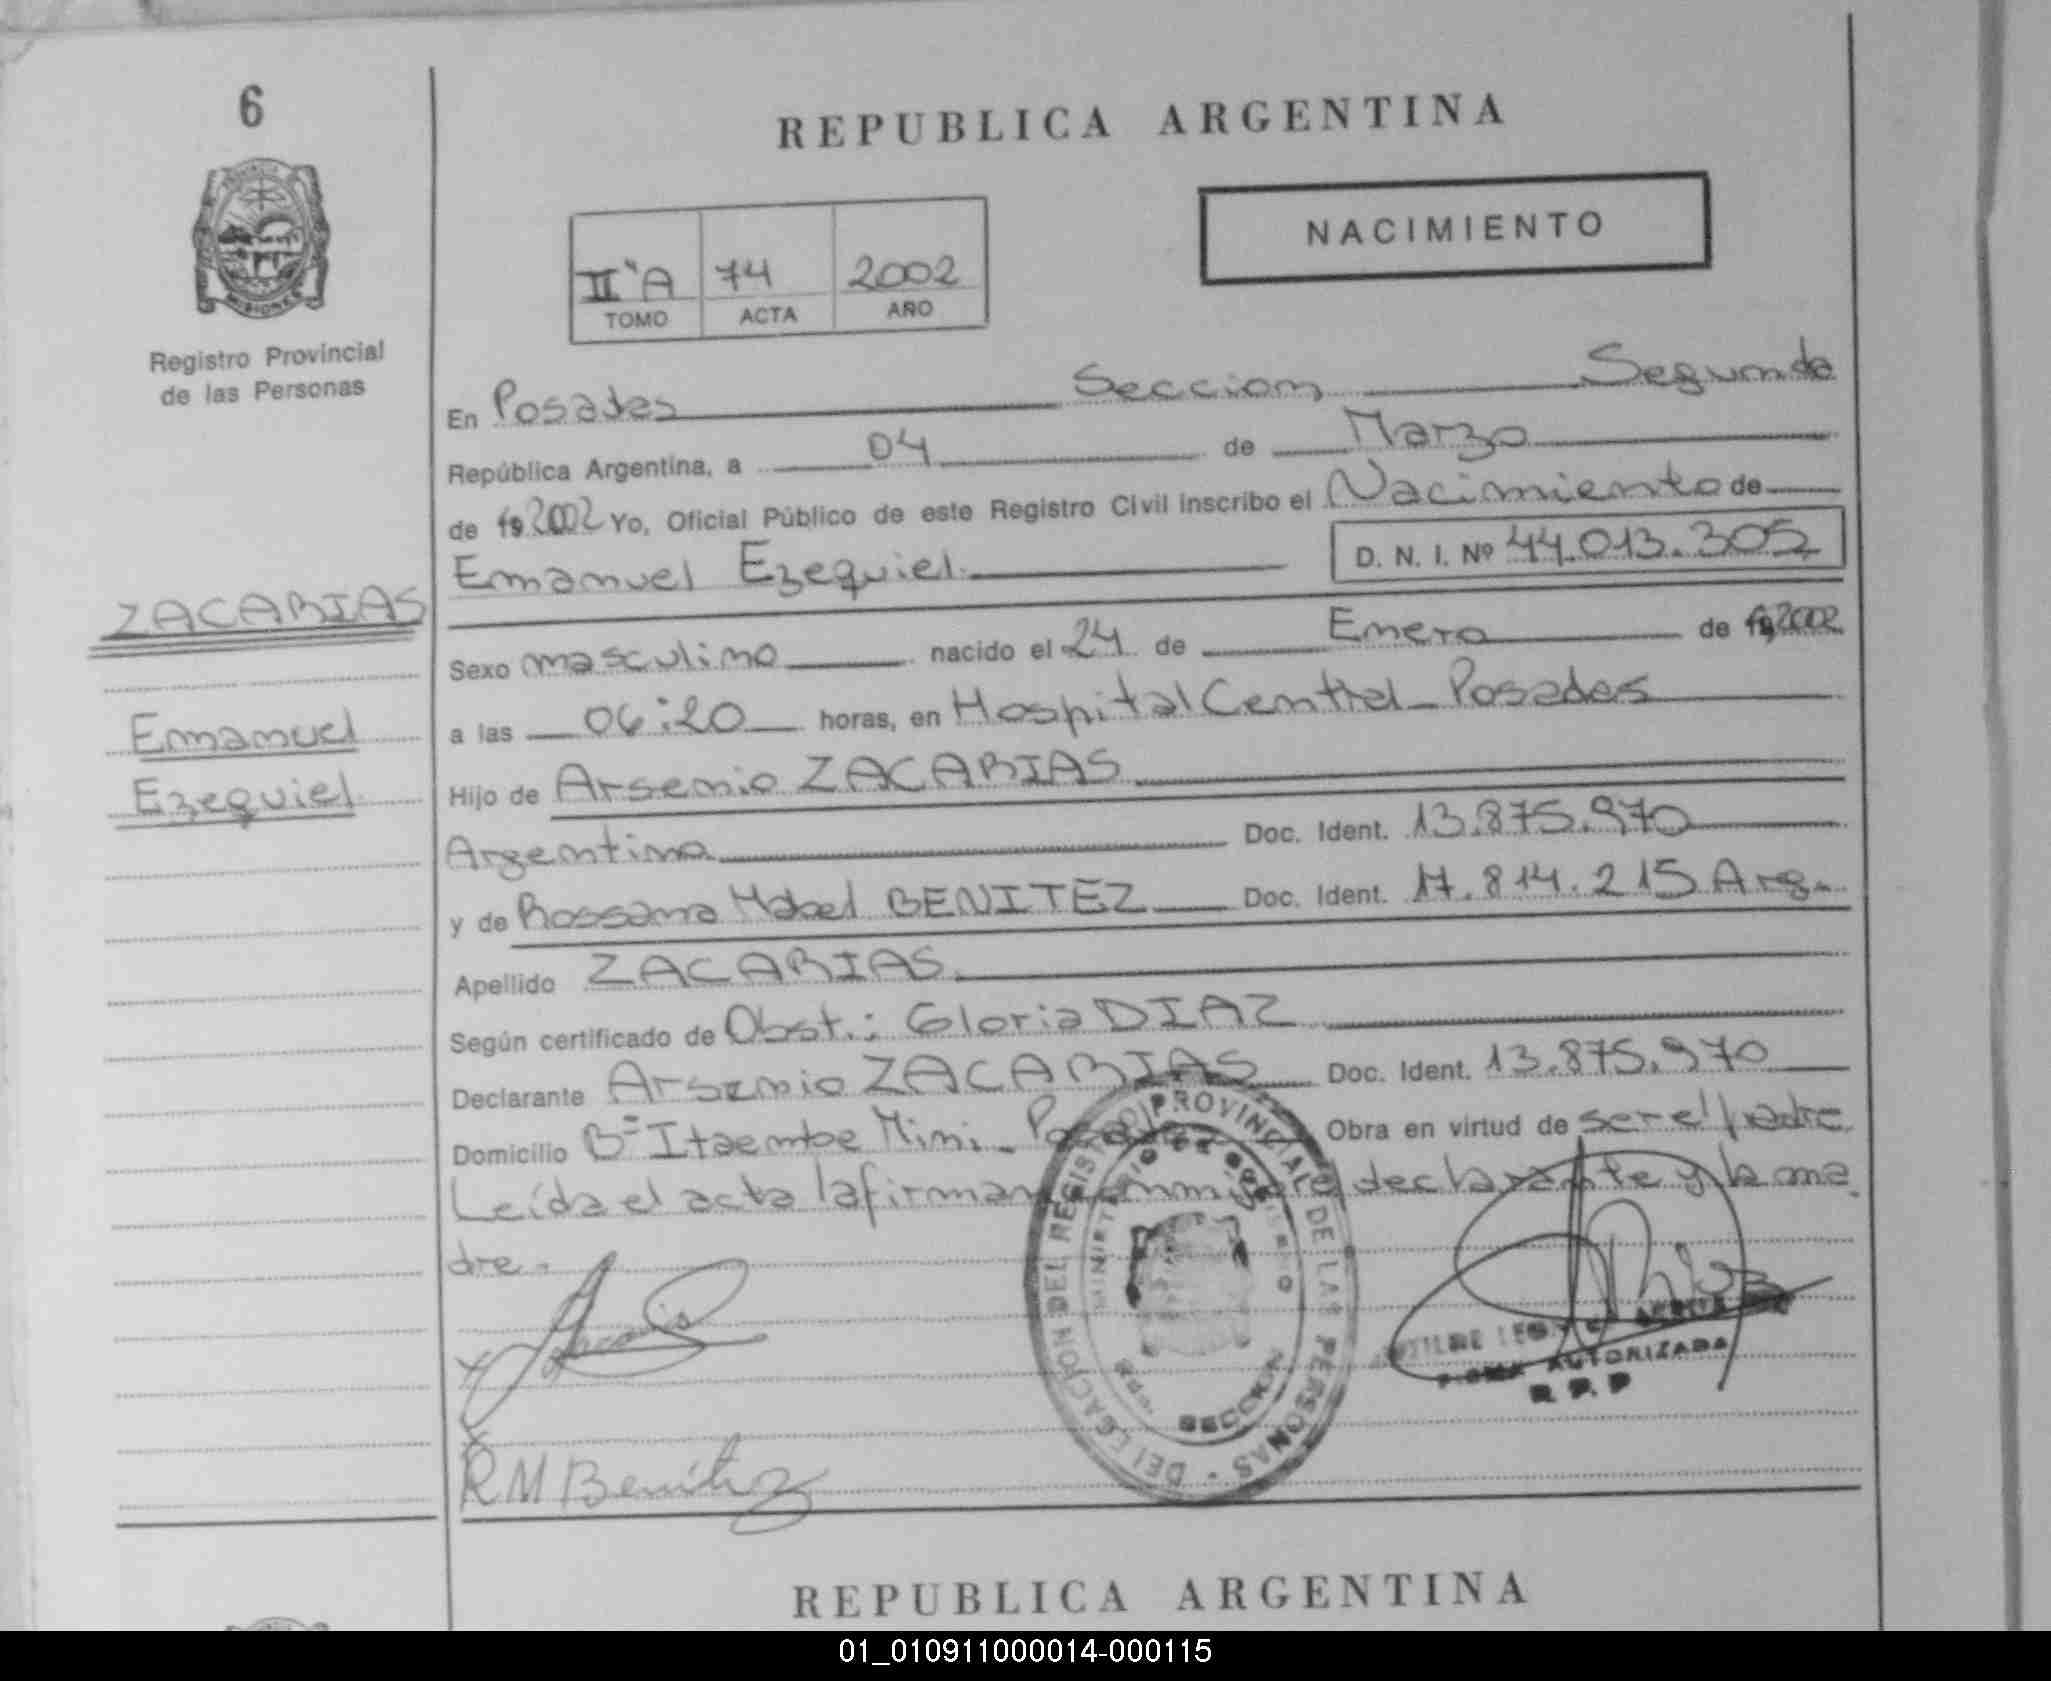 6
REPUBLICA ARGENTINA
NACIMIENTO
II "A 74 2002
TOMO ACTA AÑO
MISIONES
Registro Provincial
de las Personas
En Posadas Seccion Segunda
República Argentina, a 04 de Marzo
de 19 2002 Yo, Oficial Público de este Registro Civil inscribo el Nacimiento de
Emanuel Ezequiel. D. N. I. Nº 44.013.305
ZACARIAS
Sexo masculino nacido el 24 de Enero de 19 2002
Emanuel
Ezequiel
a las 06:20 horas, en Hospital Central - Posadas
Hijo de Arsenio ZACARIAS
Argentino Doc. Ident. 13.875.970
y de Rossana Mabel BENITEZ Doc. Ident. 17.814.215 Arg.
Apellido ZACARIAS
Según certificado de Obst.: Gloria DIAZ
Declarante Arsenio ZACARIAS Doc. Ident. 13.875.970
Domicilio Bº Itaembe Mini - Posadas Obra en virtud de ser el padre
Leída el acta la firman conmigo el declarante y la ma
dre.
DELEGACION DEL REGISTRO PROVINCIAL DE LAS PERSONAS
MINISTERIO DE GOBIERNO
SECCION
FIRMA AUTORIZADA
R.P.P
RM Benítez
REPUBLICA ARGENTINA
01_010911000014-000115